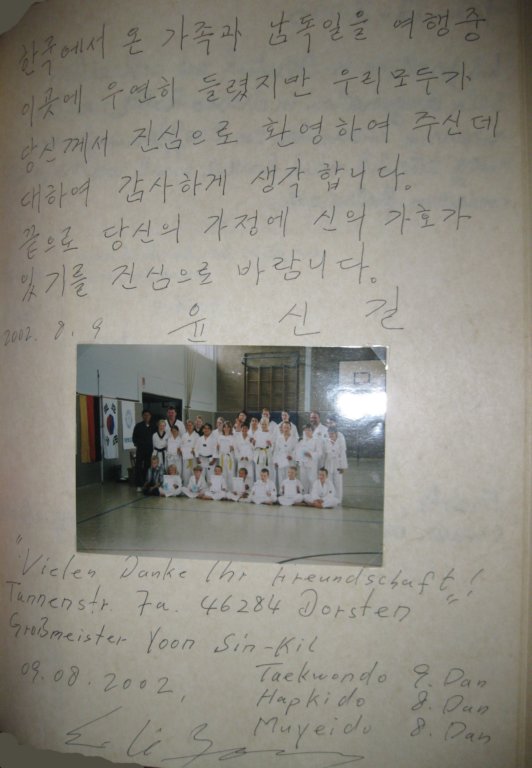 한국에서 온 가족과 남독일을 여행중
이곳에 우연히 들렸지만 우리모두가
당신께서 진심으로 환영하여 주신데
대하여 감사하게 생각합니다.
끝으로 당신의 가정에 신의 가호가
있기를 진심으로 바랍니다.
2002. 8. 9 윤 신 길
"Vielen Danke Ihr Freundschaft"!
Tannenstr. 7a. 46284 Dorsten
Großmeister Yoon Sin-Kil
09.08.2002, Taekwondo 9. Dan
Hapkido 8. Dan
Muyeido 8. Dan